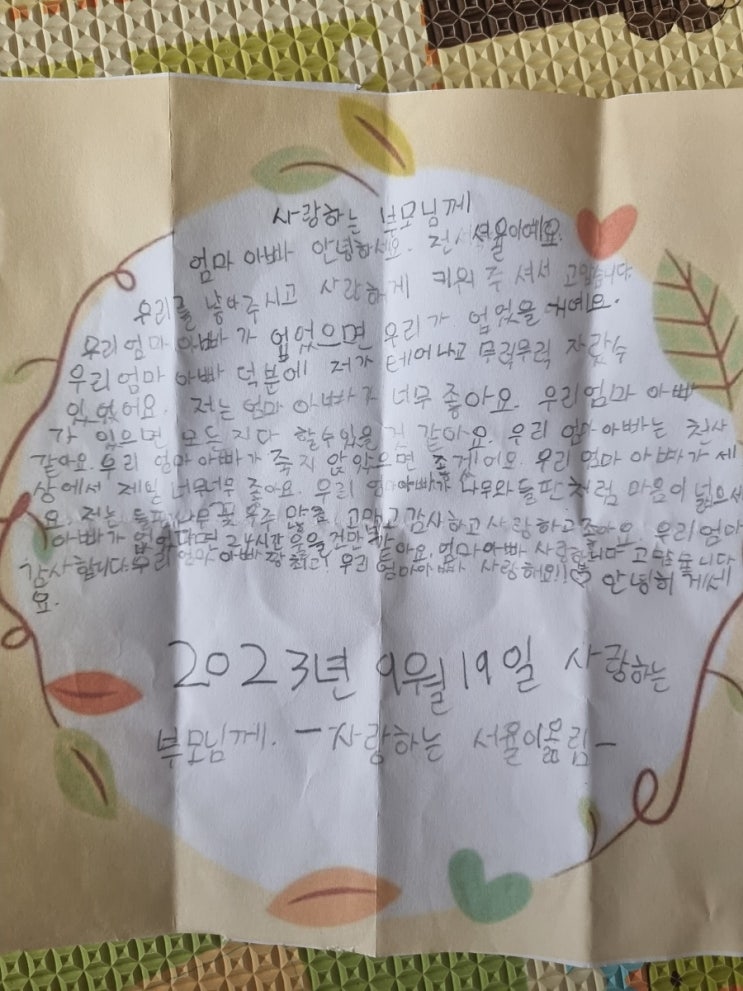 사랑하는 부모님께
엄마 아빠 안녕하세요. 전 서율이예요.
우리를 낳아주시고 사랑하게 키워 주셔서 고맙습니다
우리 엄마 아빠가 없었으면 우리가 없었을 거예요.
우리 엄마 아빠 덕분에 저가 테어나고 무럭무럭 자랄 수
있었어요. 저는 엄마 아빠가 너무 좋아요. 우리 엄마 아빠
가 있으면 모든지 다 할 수 있을 것 같아요. 우리 엄마 아빠는 천사
같아요. 우리 엄마 아빠가 죽지 않았으면 좋겠어요. 우리 엄마 아빠가 세
상에서 제일 너무너무 좋아요. 우리 엄마아빠가 나무와 들판처럼 마음이 넓으세
요. 저는 들판 나무 꽃 우주 만큼 고맙고 감사하고 사랑하고 좋아요. 우리 엄마
아빠가 없었다면 24시간 을을 건만 같아요. 엄마 아빠 사랑하며 고맙습니다
감사합니다. 우리 엄마 아빠 짱 최고! 우리 엄마아빠 사랑해요!!♡ 안녕히 계세
요.
2023년 9월 19일 사랑하는
부모님께. -사랑하는 서율이 옮림-